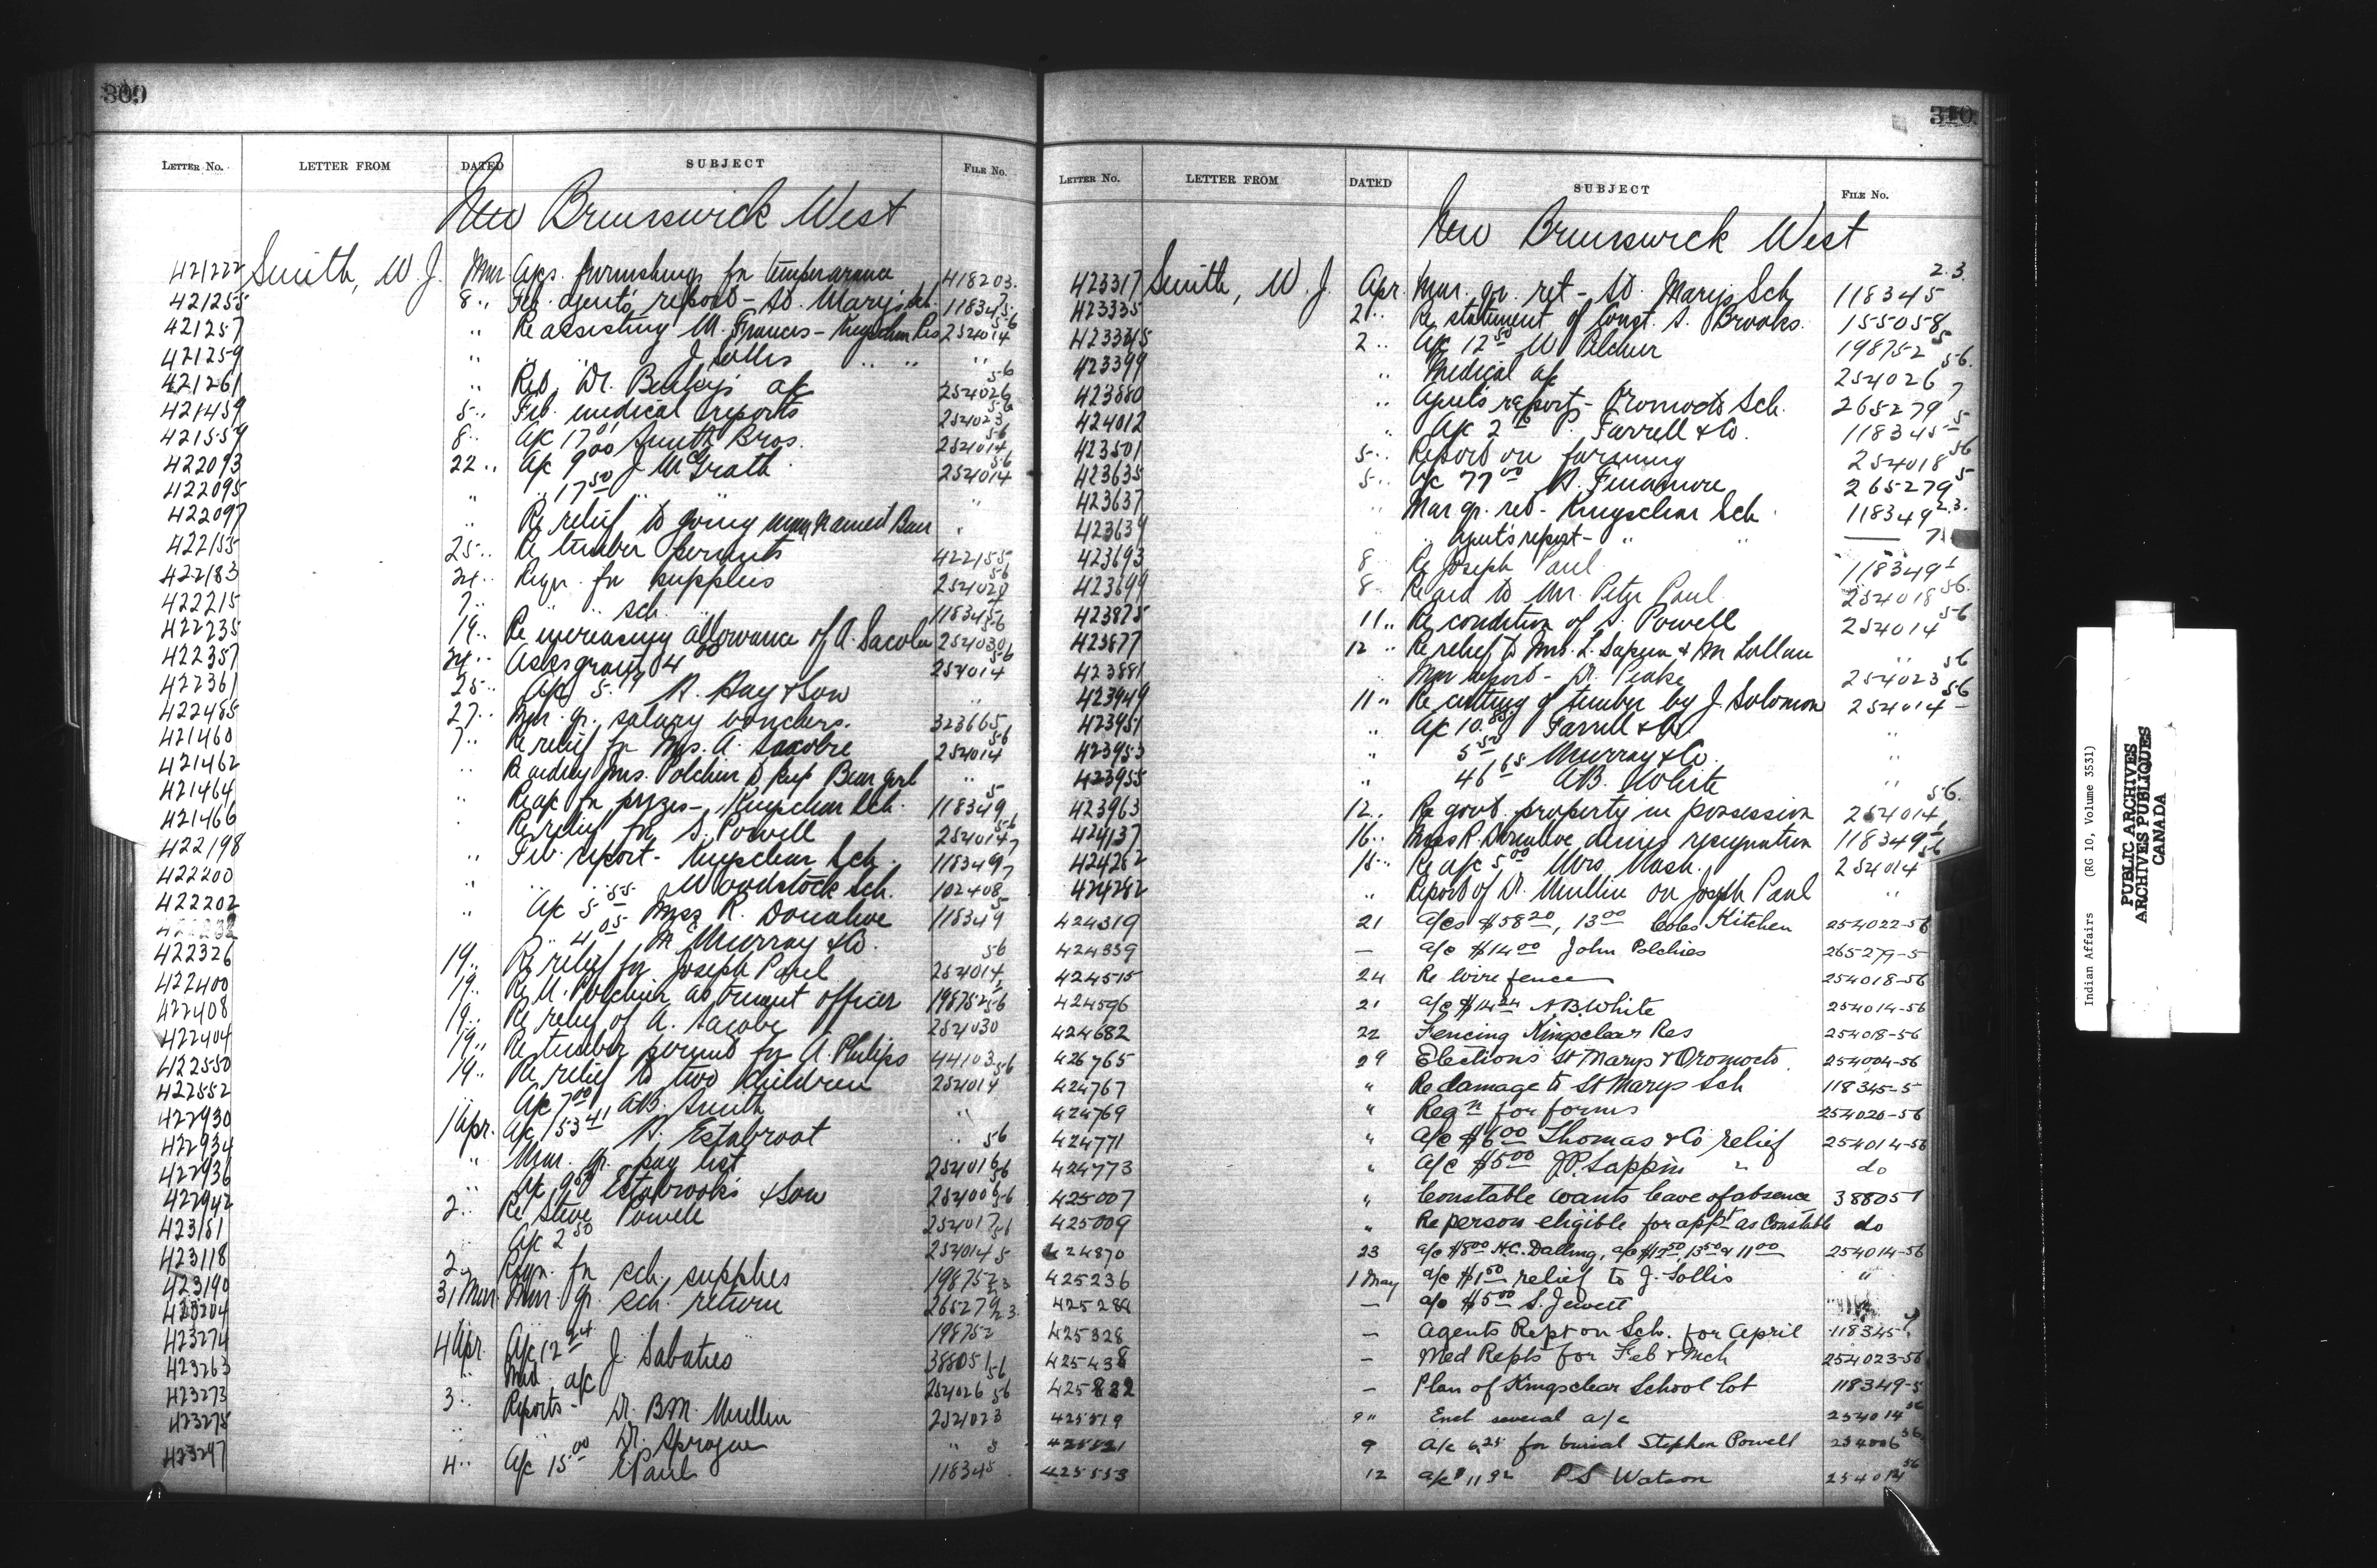 309
LETTER NO. LETTER FROM DATED SUBJECT FILE No.
New Brunswick West
421222 Smith, W. J. Mar Apps. furnishings for temperance 418203.
421255 8 " Feb. agent's report - St. Mary's Sch. 118345 7
421257 " Re assisting M. Francis - Kingsclear Res 254014 56
421259 " " J. Sollis " " "
421261 " Reb. Dr. a/c 254026 56
421459 5 " Feb. medical reports 254023 56
421557 8 " A/c 17 01 Smith Bros. 254014 56
422093 22 " A/c 9 00 J McGrath 254014 56
422095 " " 17 50 " "
422097 " Re relief to young man named Bear "
422155 25 " Re timber permits 422155
422183 24 " Reqn. for supplies 56
422215 7 " " " sch. " 118345
422235 19 " Re increasing allowance of A. Sacobie 254030 56
422357 24 " Asks grant 4 00 254014 56
422361 25 " A/c 5. 19 A. Hay & Son "
422485 27 " Mar. qr. salary vouchers. 323665
421460 7 " Re relief for Mrs. A. Sacobie 254014 56
421462 " Re aiding Mrs. Polchies to keep Bear girl "
421464 " Re a/c for prizes - Kingsclear Sch. 118349 5
421466 " Re relief for S. Powell 254014 56
422198 " Feb report - Kingsclear Sch. 118349 7
422200 " " " Woodstock Sch. 102408 7
422202 " A/c 5 55 Miss R. Donahoe 118349 5
" 4 05 McMurray & Co.
422326 19 " Re relief for Joseph Paul 254014 56
422400 19 " Re M. Polchies as truant officer 198752
422408 19 " Re relief of A. Sacobie 254030 56
422404 19 " Re timber permit for A. Philips 44103
422550 19 " Re relief to two children 254014 56
422552 " A/c 7 00 A.B. Smith "
422930 1 Apr. A/c 153 41 H. Estabroot "
422934 " Mar. qr. pay list 254016 56
422936 " A/c 9 Estabrooks & Son 254006 56
422942 2 " Re Steve Powell 254017 56
423181 " A/c 2 50 254014 56
423118 2 " Reqn. for sch. supplies 198752 5
423190 31 Mar Mar. qr. sch. return 265279 2.3
423204 198752 2.3.
423274 4 Apr. A/c 12 24 J. Sabaties 388051
423263 " Med. a/c 254026 56
423273 3 " Reports - Dr. B.M. Mullin 254023 56
423275 " " Dr. Sprague " "
423297 4 " A/c 15 00 E Paul 118345 5
310
LETTER NO. LETTER FROM DATED SUBJECT FILE No.
New Brunswick West
423317 Smith, W. J. Apr. Mar. qr. ret - St. Marys Sch 118345 2.3.
423335 2 " Re statement of Const. S. Brooks. 155058
423345 2 " A/c 12 50 M Polchies 198752 5
423399 " Medical a/c 254026 56.
423880 " Agent's report - Oromocto Sch. 265279 7
424012 " A/c 2 P. Farrell & Co. 118345 5
423501 5 " Report on farming 254018 56
423635 5 " A/c 77 00 A. Finamore 265279 5
423637 " Mar qr. ret - Kingsclear Sch 118349 2.3.
423639 " " Agent's report - " " 7
423693 8 Re Joseph Paul 118349
423699 8 Re aid to Mr. Peter Paul 254018 56.
423875 11 " Re condition of S. Powell 254014 56
423877 12 " Re relief to Mrs. L. Sapien & M Lollau "
423881 " Mar report - Dr. Peake 254023 56
423949 11 " Re cutting of timber by J. Solomon 254014 56
423951 " A/c 10. 85 Farrell & Co. "
423953 " 5 50 Murray & Co. "
423955 " 46 65 A.B. White "
423963 12 " Re govt. property in possession 254014 56.
424137 16 " Miss R. Donahoe denies resignation 118349
424262 15 " Re a/c 5 00 Mrs. Nash. 254014 56
424292 " Report of Dr. Mullin on Joseph Paul "
424319 21 a/cs $58 20, 13 00 Coles Kitchen 254022-56
424339 — a/c $14 00 John Polchies 265279-5
424515 24 Re wire fence 254018-56
424596 21 a/c $14 24 A.B. White 254014-56
424682 22 Fencing Kingsclear Res 254018-56
426765 29 Elections St Marys & Oromocto 254004-56
424767 " Re damage to St Marys Sch 118345-5
424769 " Reqn for forms 254020-56
424771 " a/c $6 00 Thomas & Co relief 254014-56
424773 " a/c $5 00 J.P. Sappin " do
425007 " Constable wants leave of absence 388051
425009 " Re person eligible for appt as Constable do
424870 23 a/c $8 00 H.C. Dalling, a/c $12 50, 13 50 & 11 00 254014-56
425236 1 May a/c $1 50 relief to J. Sollis "
425288 — a/c $5 00 S. Jewett
425328 — Agents Rept on Sch. for April 118345
425438 — Med Repts for Feb & Mch 254023-56
425832 — Plan of Kingsclear School lot 118349-5
425519 9 " Encl several a/c 254014 56
425521 9 A/c 6.25 for burial Stephen Powell 254006 56.
425553 12 a/c $11 92 P S Watson 254014 56
Indian Affairs (RG 10, Volume 3531)
PUBLIC ARCHIVES
ARCHIVES PUBLIQUES
CANADA